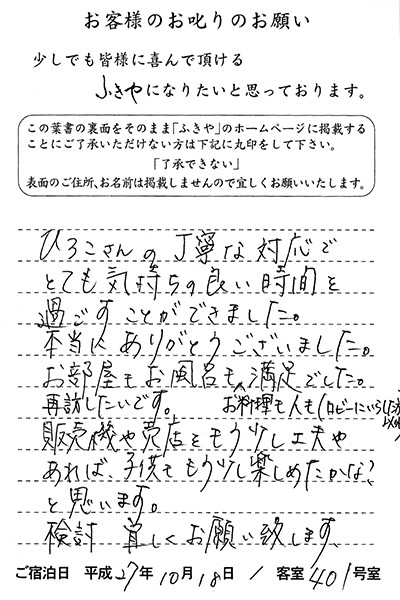 お客様のお叱りのお願い
少しでも皆様に喜んで頂ける
ふきやになりたいと思っております。
この葉書の裏面をそのまま「ふきや」のホームページに掲載する
ことにご了承いただけない方は下記に丸印をして下さい。
「了承できない」
表面のご住所、お名前は掲載しませんので宜しくお願いいたします。
ひろこさんの丁寧な対応で
とても気持ちの良い時間を
過ごすことができました。
本当にありがとうございました。
お部屋もお風呂も満足でした。
再訪したいです。 お料理も人も(ロビーにいらした方
販売機や売店をもう少し工夫や
あれば、子供ももう少し楽しめたかな?
と思います。
検討 宜しくお願い致します。
ご宿泊日 平成27年10月18日 / 客室401号室